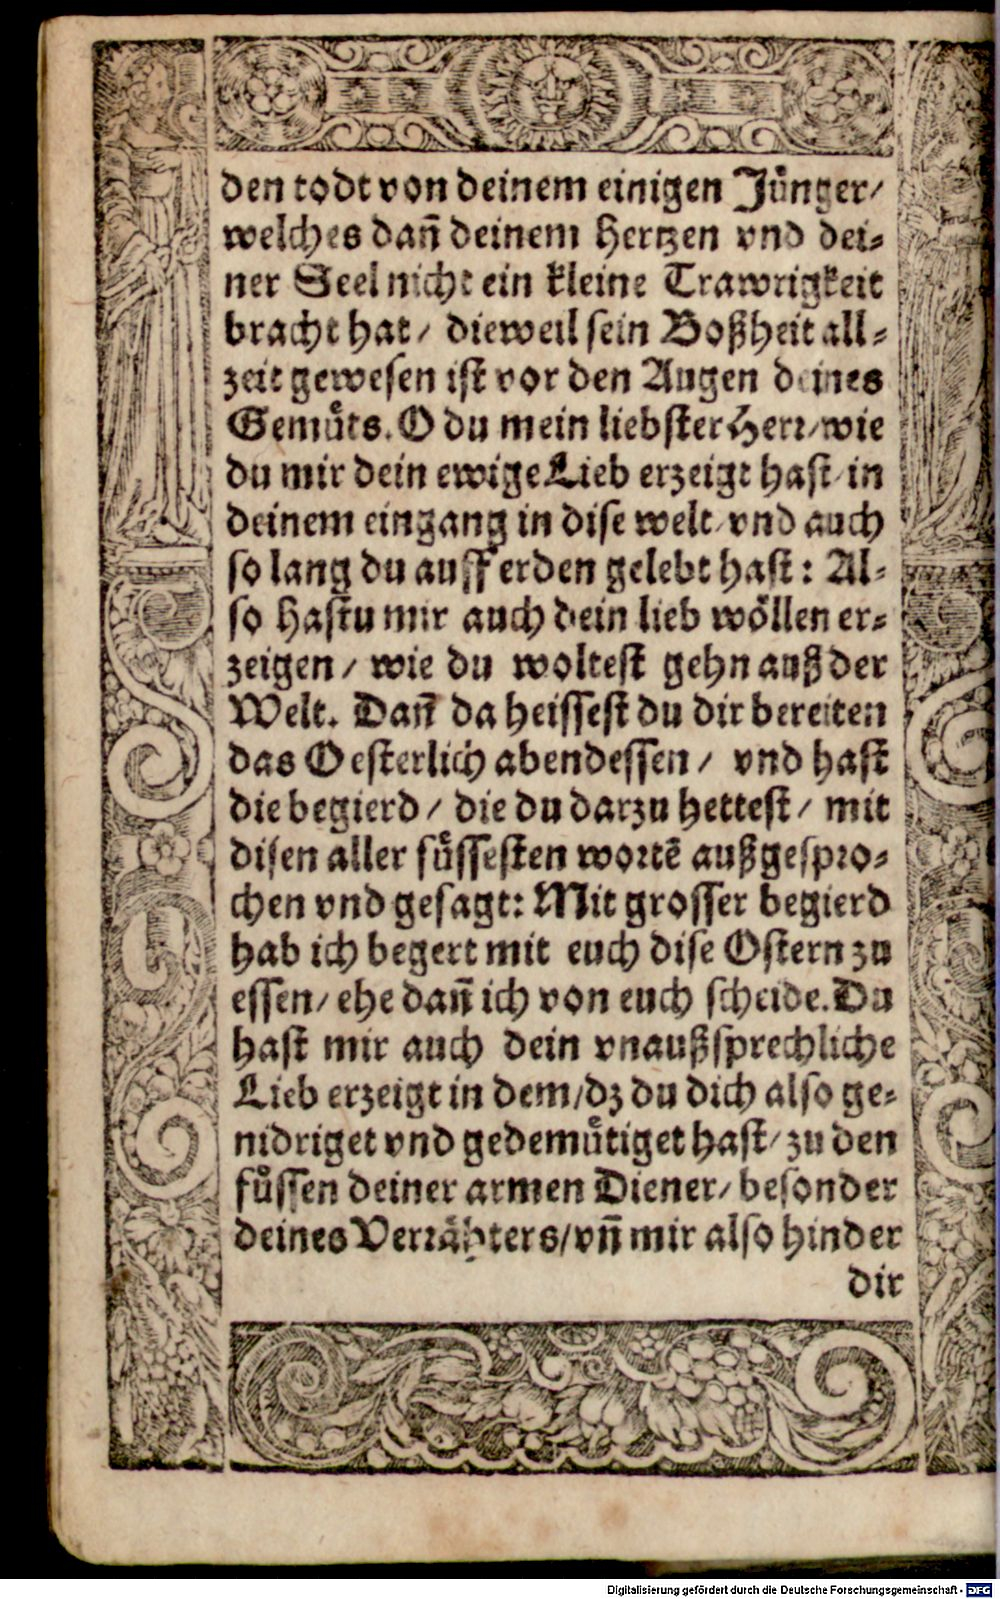 den todt von deinem einigen Jünger/
welches dañ deinem Hertzen vnd dei-
ner Seel nicht ein kleine Trawrigkeit
bracht hat/ dieweil sein Boßheit all-
zeit gewesen ist vor den Augen deines
Gemuͤts. O du mein liebster Herr/wie
du mir dein ewige Lieb erzeigt hast/in
deinem eingang in dise welt/vnd auch
so lang du auff erden gelebt hast: Al-
so hastu mir auch dein lieb woͤllen er-
zeigen/ wie du woltest gehn auß der
Welt. Dañ da heissest du dir bereiten
das Oesterlich abendessen/ vnd hast
die begierd/ die du darzu hettest/ mit
disen aller suͤssesten wortẽ außgespro-
chen vnd gesagt: Mit grosser begierd
hab ich begert mit euch dise Ostern zu
essen/ ehe dañ ich von euch scheide. Du
hast mir auch dein vnaußsprechliche
Lieb erzeigt in dem/dz du dich also ge-
nidriget vnd gedemuͤtiget hast/zu den
fuͤssen deiner armen Diener/ besonder
deines Verraͤhters/vñ mir also hinder
dir
Digitalisierung gefördert durch die Deutsche Forschungsgemeinschaft - DFG